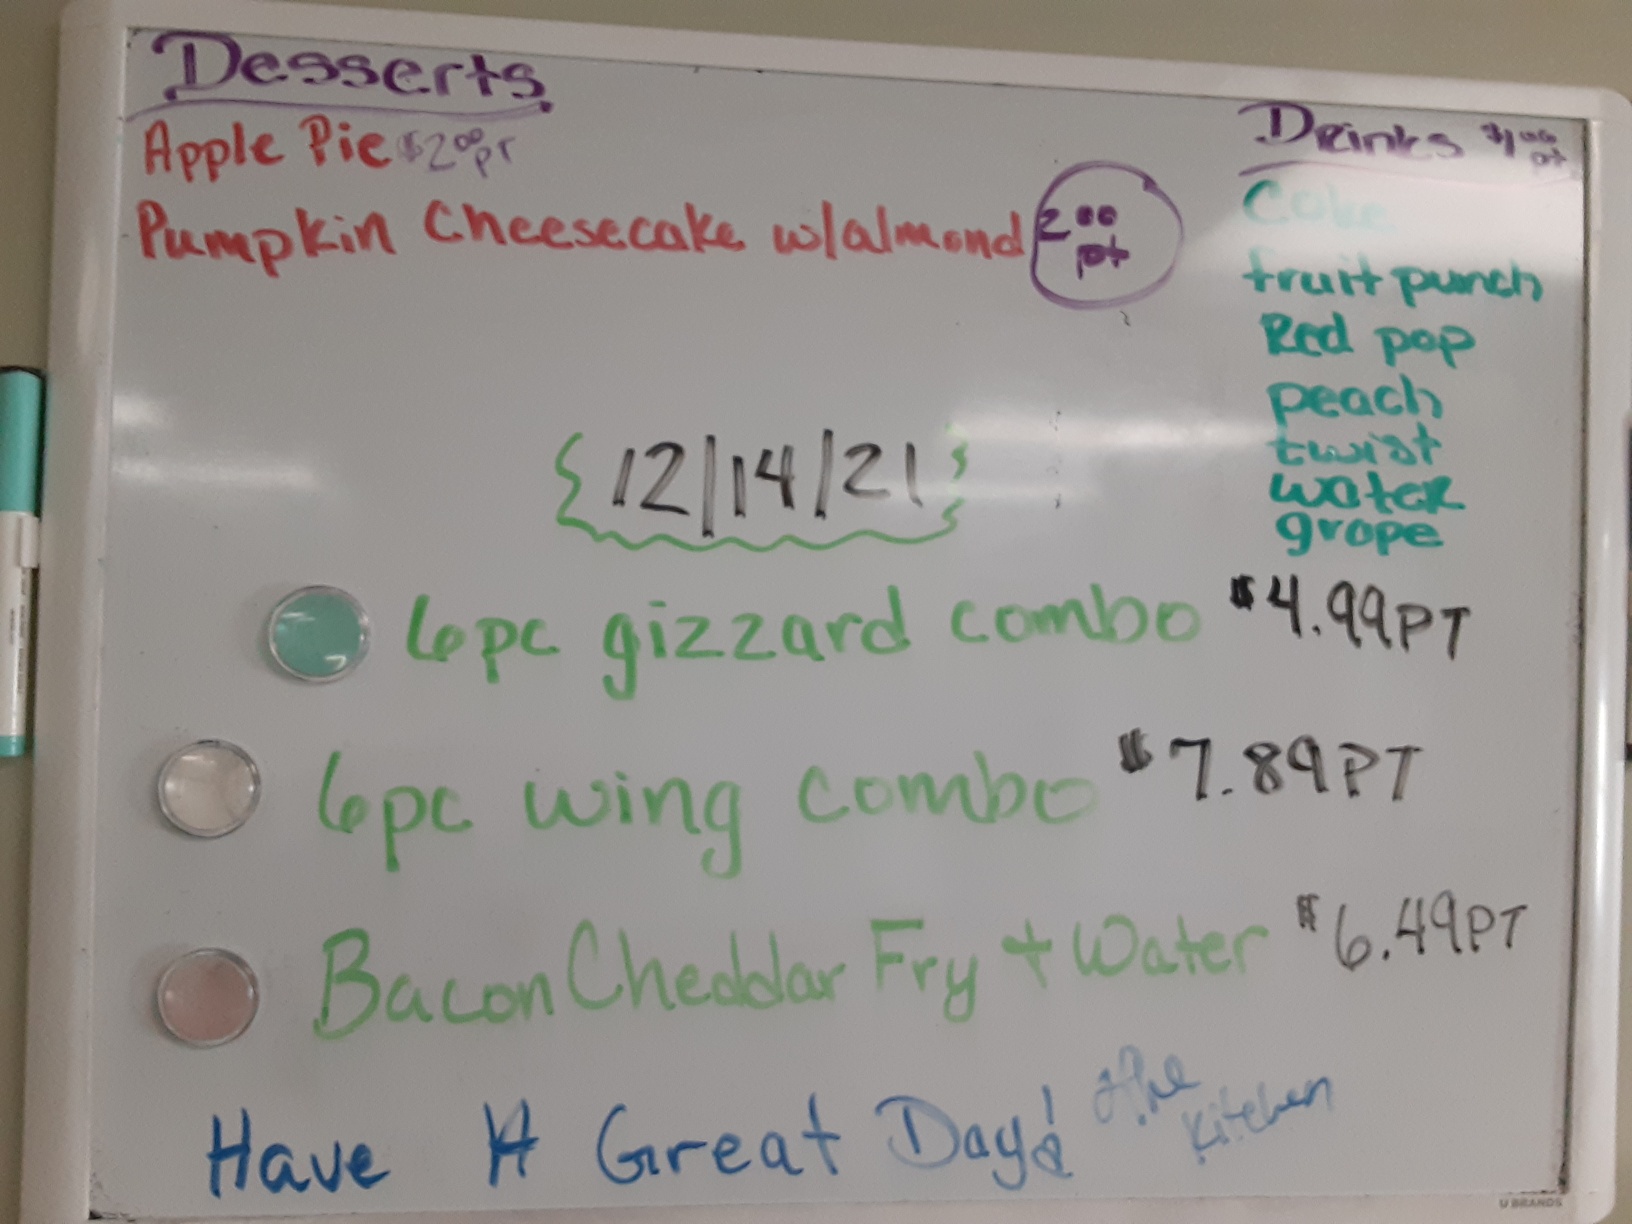 Desserts
Apple Pie $2.00 pt
Pumpkin Cheesecake w/almond 2.00 pt
Drinks $1.00 pt
Coke
fruit punch
Red pop
peach
twist
water
grape
12/14/21
6pc gizzard combo $4.99PT
6pc wing combo $7.89PT
Bacon Cheddar Fry + Water $6.49PT
Have A Great Day! The Kitchen
U BRANDS